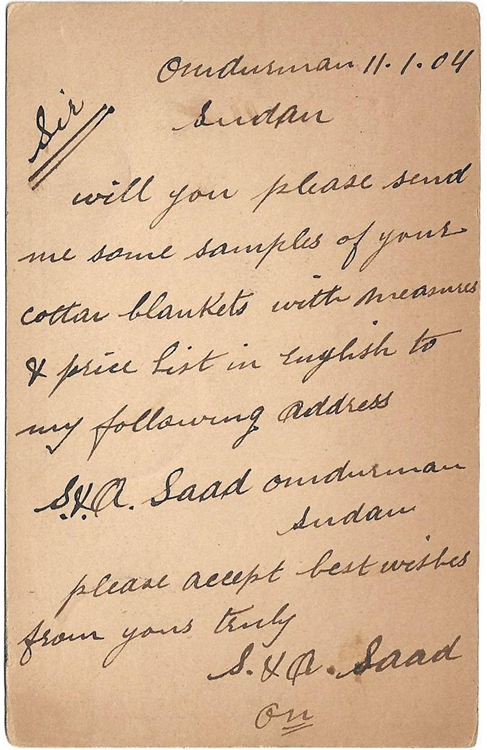 Omdurman 11.1.04
Sudan
Sir
will you please send
me some samples of your
cottan blankets with measures
& price list in English to
my following address
S.&A. Saad omdurman
Sudan
please accept best wishes
from yours truly
S.&A. Saad
On